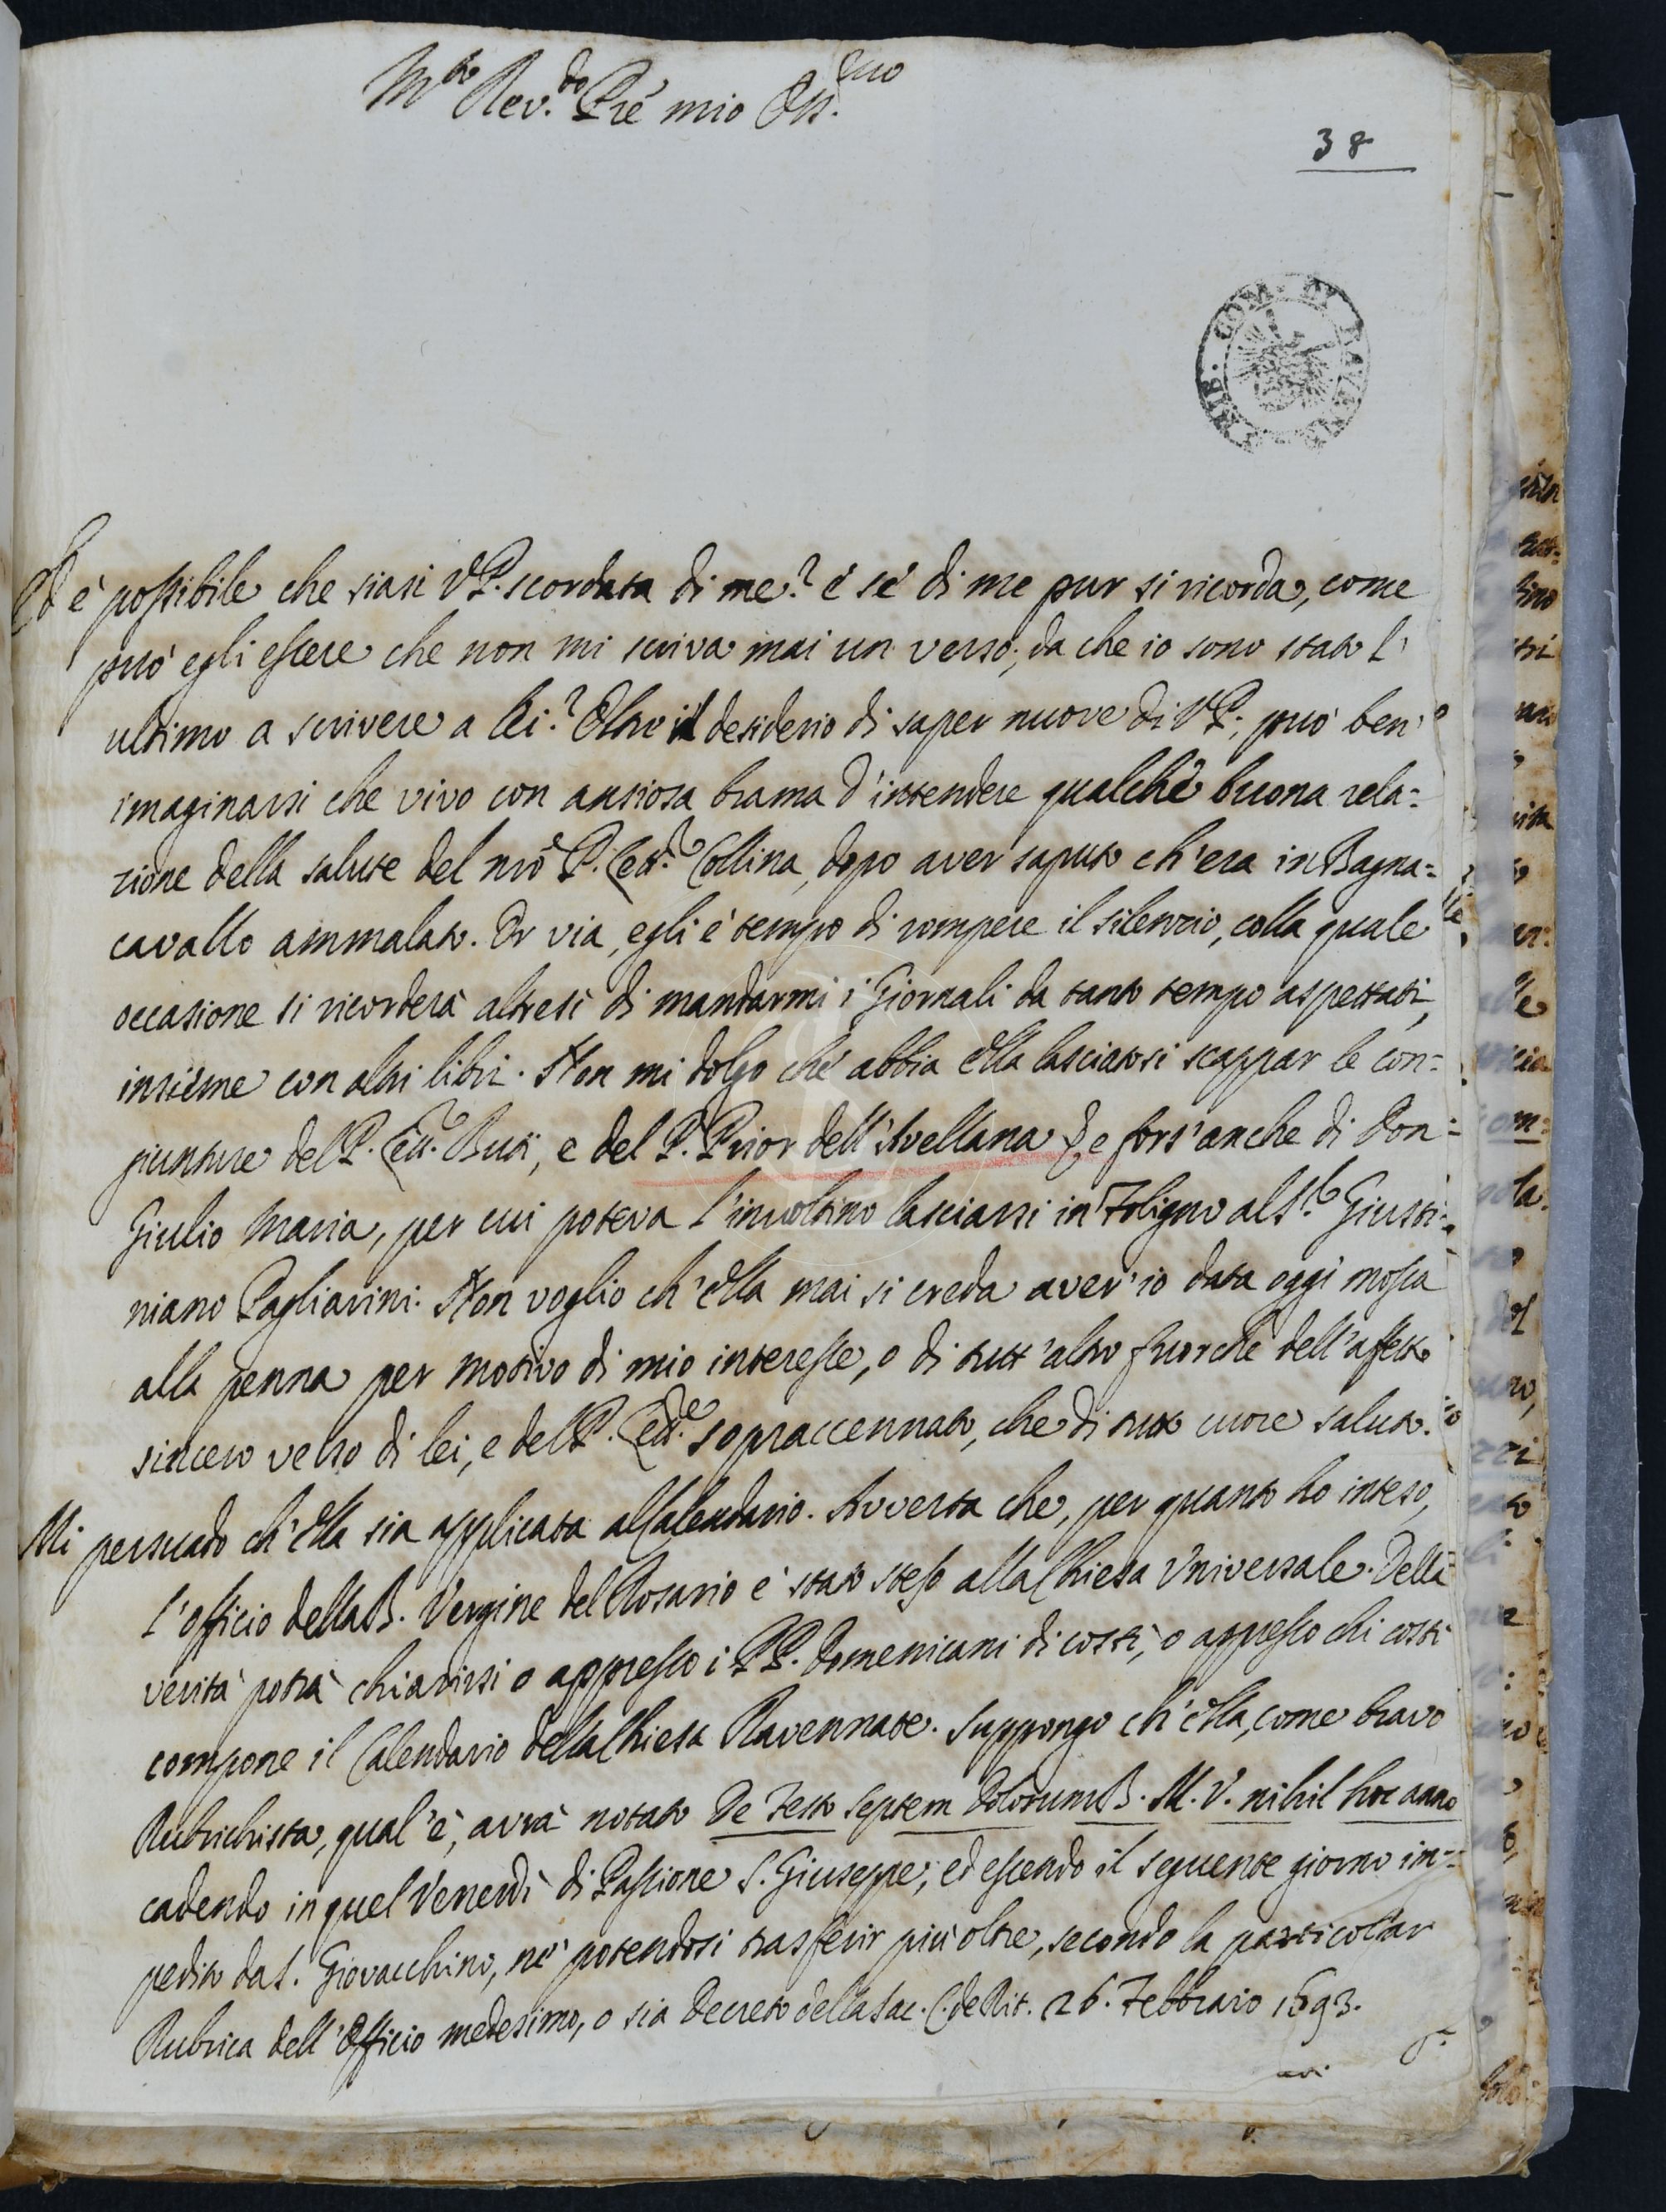 M.to Rev.do Pre mio Oss.mo
38
BIB. COM. DI RAVENNA
Ed è possibile che siasi V.P. scordata di me? e se di me pur si ricorda, come
può egli essere che non mi scriva mai un verso, da che io sono stato l'
ultimo a scrivere a lei? Oltre il desiderio di saper nuove di V.P., può ben'
imaginarsi che vivo con ansiosa brama d'intendere qualche buona rela=
zione della salute del nrõ P. Lett.e Collina, dopo aver saputo ch'era in Bagna=
cavallo ammalato. Or via, egli è tempo di rompere il silenzio, colla quale
occasione si ricorderà altresì di mandarmi i Giornali da tanto tempo aspettati,
insieme con altri libri. Non mi dolgo che abbia Ella lasciatosi scappar le con=
giunture del P. Lett.e Buti, e del P. Prior dell'Avellana, e fors'anche di Don
Giulio Maria, per cui poteva l'involtino lasciarsi in Foligno al S.r Giusti=
niano Pagliarini. Non voglio ch'Ella mai si creda aver'io data oggi mossa
alla penna per motivo di mio interesse, o di tutt'altro fuorchè dell'affetto
sincero verso di lei, e del P. Lett.e sopraccennato, che di tutto cuore saluto.
Mi persuado ch'Ella sia applicata al Calendario. Avverta che, per quanto ho inteso,
l'officio della B. Vergine del Rosario è stato steso alla Chiesa Universale. Della
verità potrà chiarirsi o appresso i PP. Domenicani di costì, o appresso chi costì
compone il Calendario della Chiesa Ravennate. Suppongo ch'Ella, come bravo
Rubrichista, qual'è, avrà notato De Festo Septem Dolorum B. M. V. nihil hoc anno
cadendo in quel Venerdì di Passione S. Giuseppe, ed essendo il seguente giorno im=
pedito da S. Giovacchino, nè potendosi trasferir più oltre, secondo la particolar
Rubrica dell'Officio medesimo, o sia Decreto della Sac. C. de Rit. 26. Febbraio 1693.